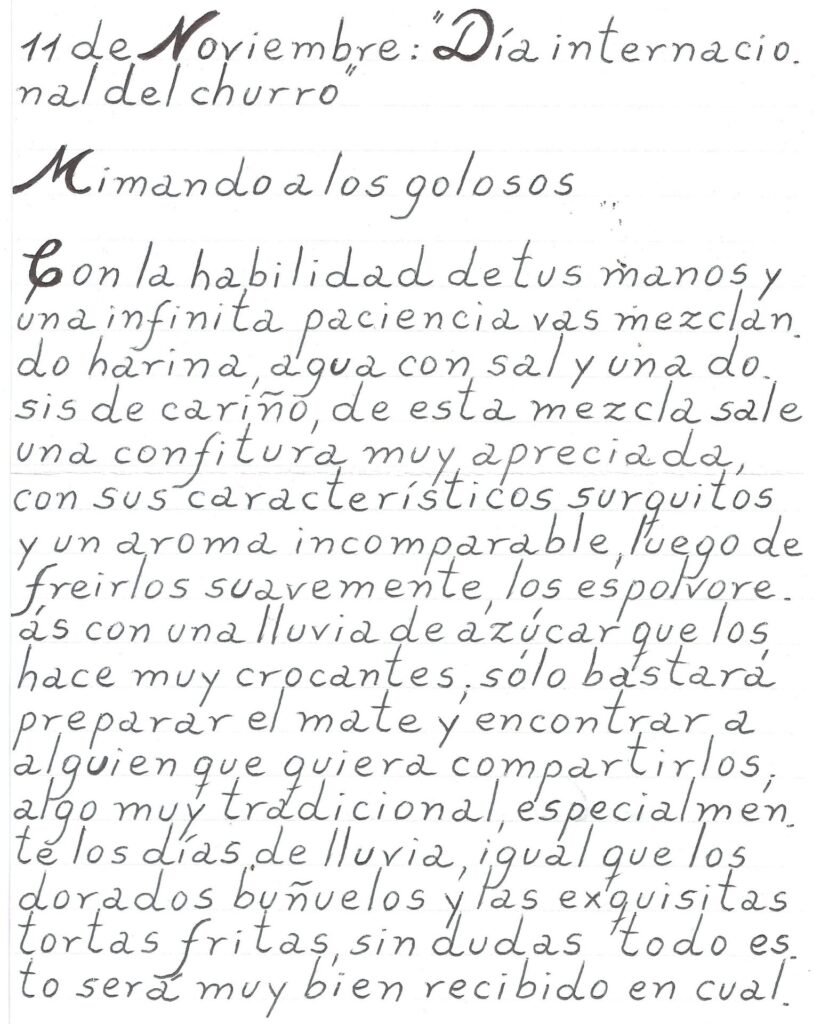 11 de Noviembre: "Día internacio-
nal del churro"
Mimando a los golosos
Con la habilidad de tus manos y
una infinita paciencia vas mezclan-
do harina, agua con sal y una do-
sis de cariño, de esta mezcla sale
una confitura muy apreciada,
con sus característicos surquitos
y un aroma incomparable, luego de
freirlos suavemente, los espolvore-
ás con una lluvia de azúcar que los
hace muy crocantes; sólo bastará
preparar el mate y encontrar a
alguien que quiera compartirlos;
algo muy tradicional, especialmen-
te los días de lluvia, igual que los
dorados buñuelos y las exquisitas
tortas fritas, sin dudas todo es-
to será muy bien recibido en cual-